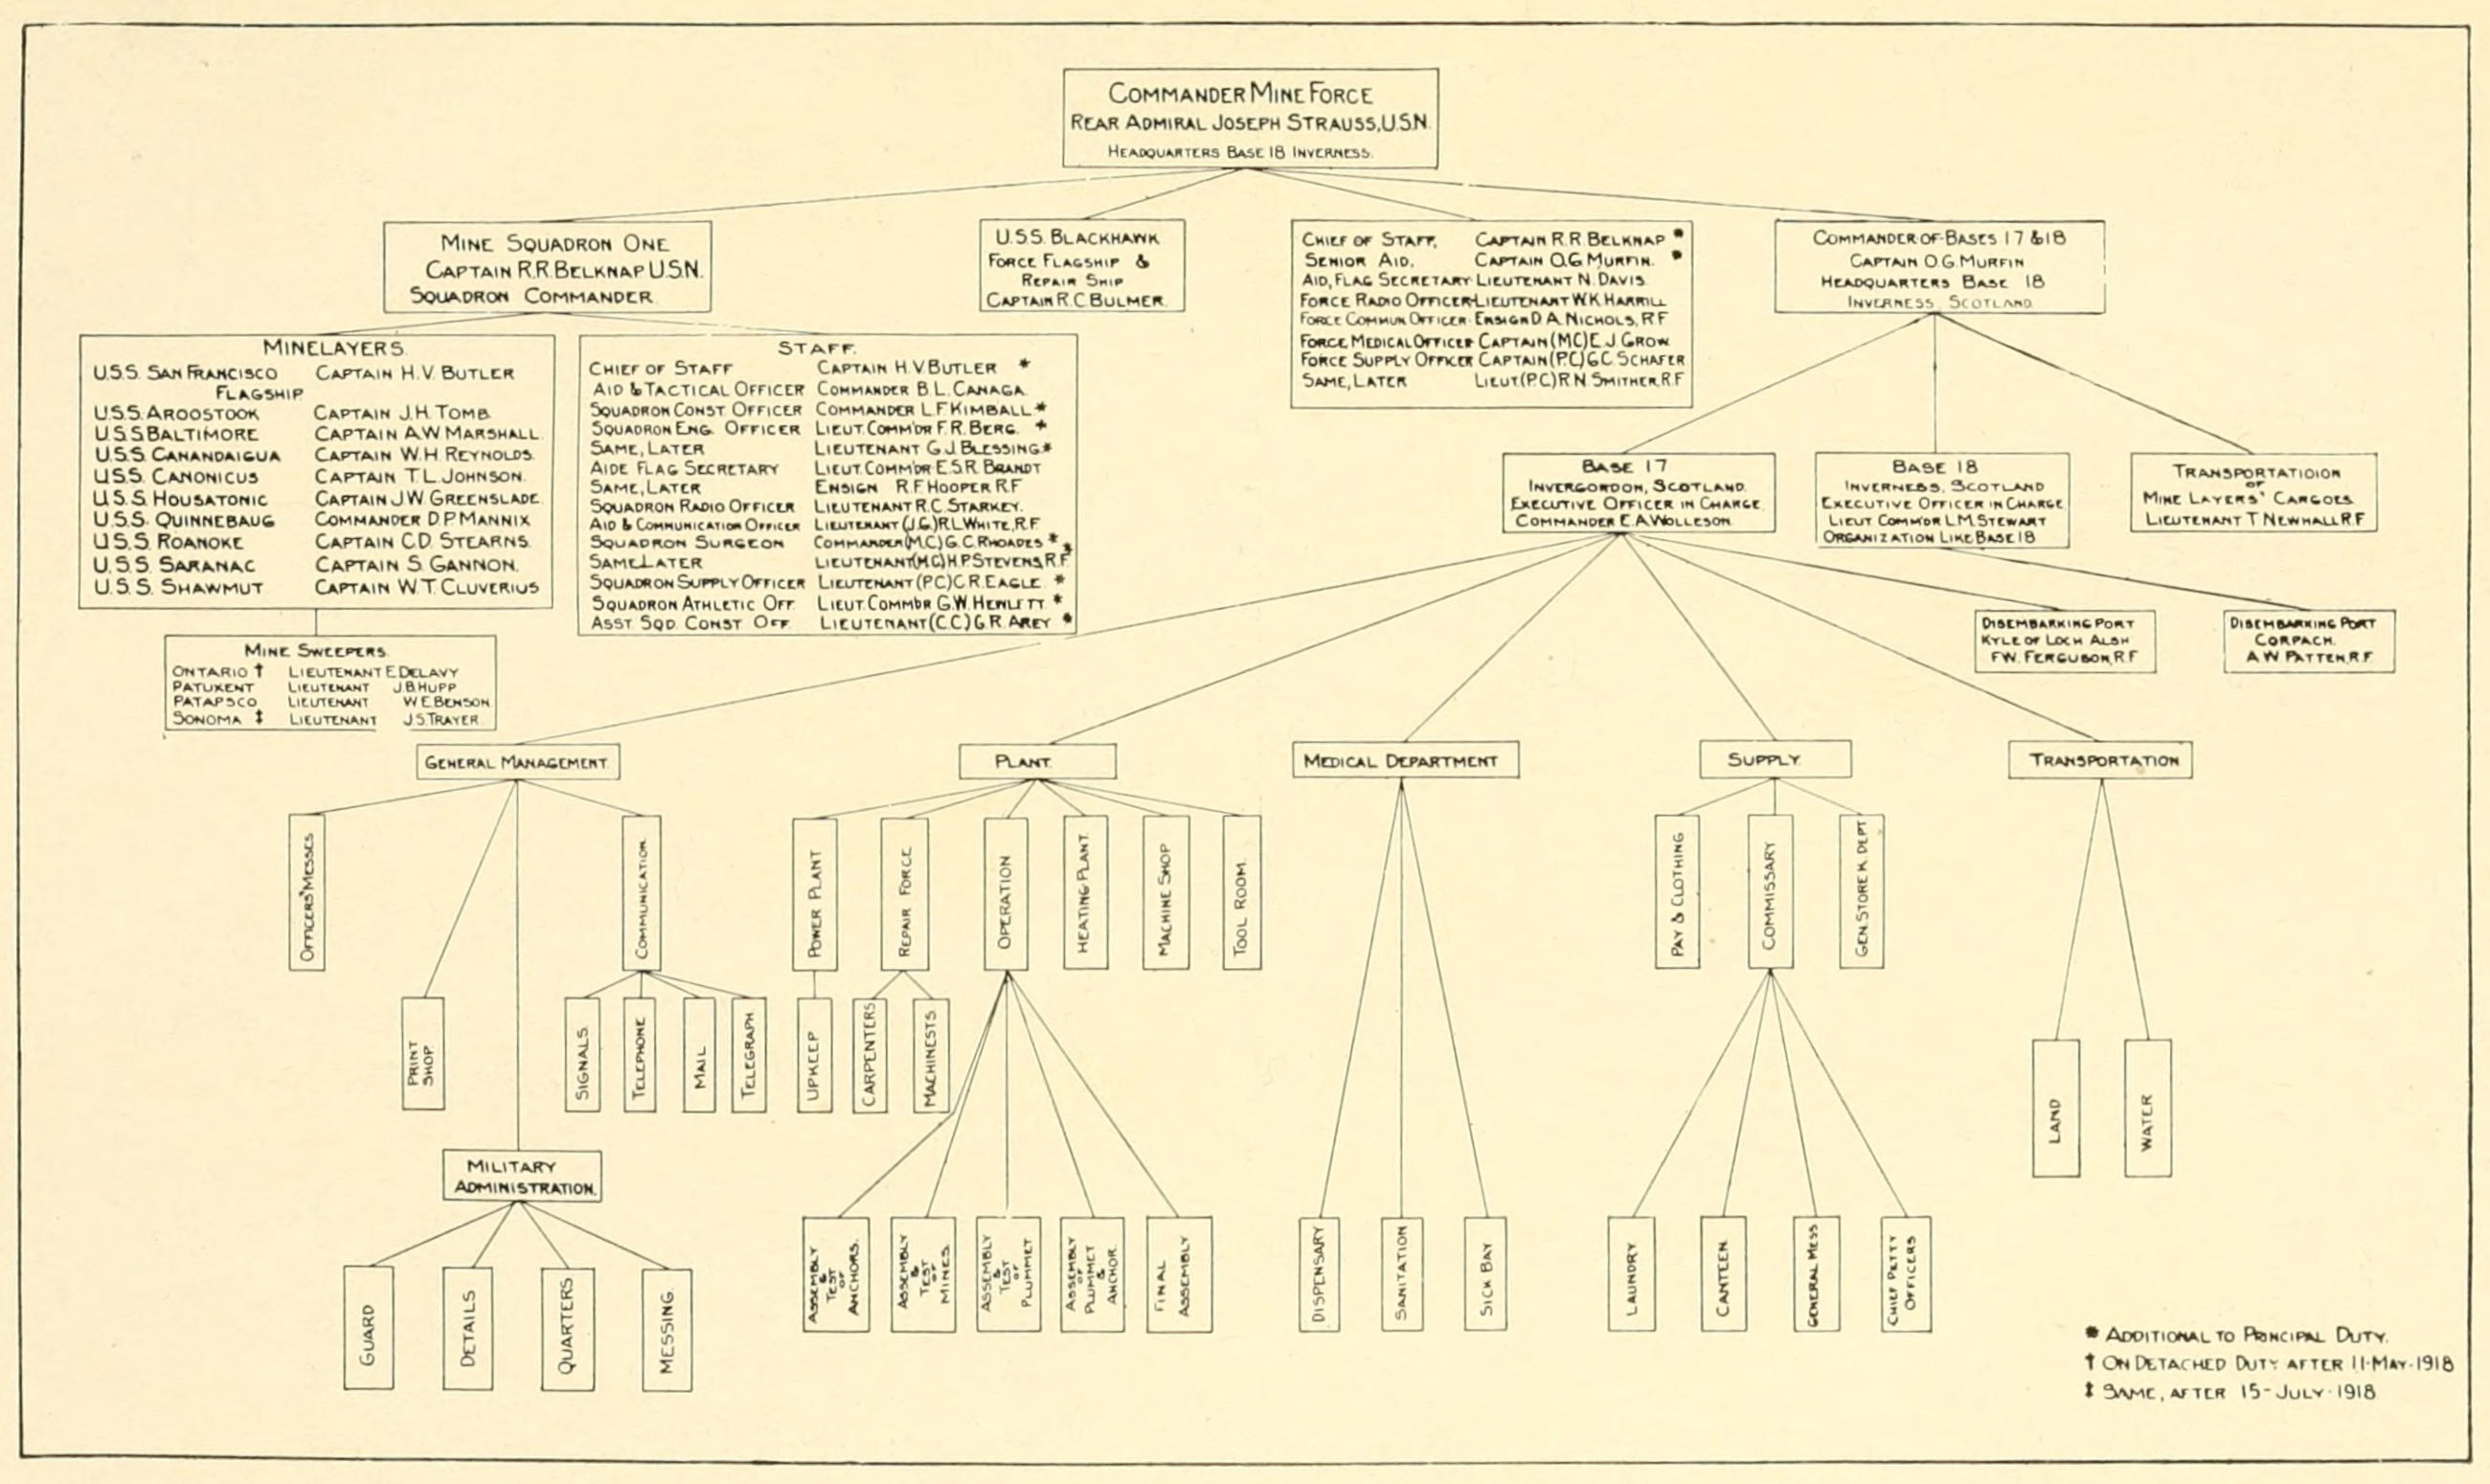 COMMANDER MINE FORCE
REAR ADMIRAL JOSEPH STRAUSS, U.S.N.
HEADQUARTERS BASE 18 INVERNESS.
MINE SQUADRON ONE
CAPTAIN R.R. BELKNAP U.S.N.
SQUADRON COMMANDER
U.S.S. BLACKHAWK
FORCE FLAGSHIP &
REPAIR SHIP
CAPTAIN R.C. BULMER.
CHIEF OF STAFF, CAPTAIN R.R. BELKNAP *
SENIOR AID, CAPTAIN O.G. MURFIN. *
AID, FLAG SECRETARY LIEUTENANT N. DAVIS
FORCE RADIO OFFICER LIEUTENANT W.K. HARRILL
FORCE COMMUN. OFFICER ENSIGN D.A. NICHOLS, R.F
FORCE MEDICAL OFFICER CAPTAIN (MC) E.J. GROW
FORCE SUPPLY OFFICER CAPTAIN (P.C) G.C. SCHAFER
SAME, LATER LIEUT. (P.C) R.N. SMITHER. R.F
COMMANDER OF BASES 17 & 18
CAPTAIN O.G. MURFIN
HEADQUARTERS BASE 18
INVERNESS, SCOTLAND
MINELAYERS.
U.S.S. SAN FRANCISCO CAPTAIN H.V. BUTLER
FLAGSHIP
U.S.S. AROOSTOOK CAPTAIN J.H. TOMB
U.S.S BALTIMORE CAPTAIN A.W. MARSHALL.
U.S.S. CANANDAIGUA CAPTAIN W.H. REYNOLDS.
U.S.S. CANONICUS CAPTAIN T.L. JOHNSON.
U.S.S. HOUSATONIC CAPTAIN J.W. GREENSLADE.
U.S.S. QUINNEBAUG COMMANDER D.P. MANNIX
U.S.S. ROANOKE CAPTAIN C.D. STEARNS.
U.S.S. SARANAC CAPTAIN S. GANNON.
U.S.S. SHAWMUT CAPTAIN W.T. CLUVERIUS
STAFF.
CHIEF OF STAFF CAPTAIN H.V. BUTLER *
AID & TACTICAL OFFICER COMMANDER B.L. CANAGA.
SQUADRON CONST. OFFICER COMMANDER L.F. KIMBALL *
SQUADRON ENG. OFFICER LIEUT. COMM'DR F.R. BERG. *
SAME, LATER LIEUTENANT G.J. BLESSING *
AIDE FLAG SECRETARY LIEUT. COMM'DR E.S.R. BRANDT
SAME, LATER ENSIGN R.F. HOOPER R.F
SQUADRON RADIO OFFICER LIEUTENANT R.C. STARKEY.
AID & COMMUNICATION OFFICER LIEUTENANT (J.G) R.L. WHITE, R.F.
SQUADRON SURGEON COMMANDER (M.C) G.C. RHOADES *
SAME LATER LIEUTENANT (M.C) H.P. STEVENS, R.F. *
SQUADRON SUPPLY OFFICER LIEUTENANT (P.C) C.R. EAGLE *
SQUADRON ATHLETIC OFF. LIEUT. COMM'DR G.W. HEWLETT *
ASST SQD. CONST OFF. LIEUTENANT (C.C) G.R. AREY *
MINE SWEEPERS.
ONTARIO † LIEUTENANT E. DELAVY
PATUXENT LIEUTENANT J.B. HUPP
PATAPSCO LIEUTENANT W.E. BENSON
SONOMA ‡ LIEUTENANT J.S. TRAYER
BASE 17
INVERGORDON, SCOTLAND.
EXECUTIVE OFFICER IN CHARGE
COMMANDER E.A. WOLLESON.
BASE 18
INVERNESS, SCOTLAND
EXECUTIVE OFFICER IN CHARGE
LIEUT COMM'DR L.M. STEWART
ORGANIZATION LIKE BASE 18
TRANSPORTATIOION
OF
MINE LAYERS' CARGOES
LIEUTENANT T. NEWHALL R.F
DISEMBARKING PORT
KYLE OF LOCH ALSH
F.W. FERGUSON, R.F
DISEMBARKING PORT
CORPACH.
A.W PATTEN, R.F.
GENERAL MANAGEMENT.
PLANT.
MEDICAL DEPARTMENT
SUPPLY
TRANSPORTATION
OFFICERS' MESSES
COMMUNICATION.
POWER PLANT
REPAIR FORCE
OPERATION
HEATING PLANT
MACHINE SHOP
TOOL ROOM.
PAY & CLOTHING
COMMISSARY
GEN. STORE K. DEPT
PRINT
SHOP.
SIGNALS.
TELEPHONE
MAIL
TELEGRAPH
UPKEEP
CARPENTERS
MACHINESTS
LAND
WATER
MILITARY
ADMINISTRATION.
GUARD
DETAILS
QUARTERS
MESSING.
ASSEMBLY
&
TEST
OF
ANCHORS.
ASSEMBLY
&
TEST
OF
MINES.
ASSEMBLY
&
TEST
OF
PLUMMET
ASSEMBLY
OF
PLUMMET
&
ANCHOR.
FINAL
ASSEMBLY
DISPENSARY
SANITATION
SICK BAY
LAUNDRY
CANTEEN.
GENERAL MESS
CHIEF PETTY
OFFICERS
* ADDITIONAL TO PRINCIPAL DUTY.
† ON DETACHED DUTY AFTER 11-MAY-1918
‡ SAME, AFTER 15-JULY-1918